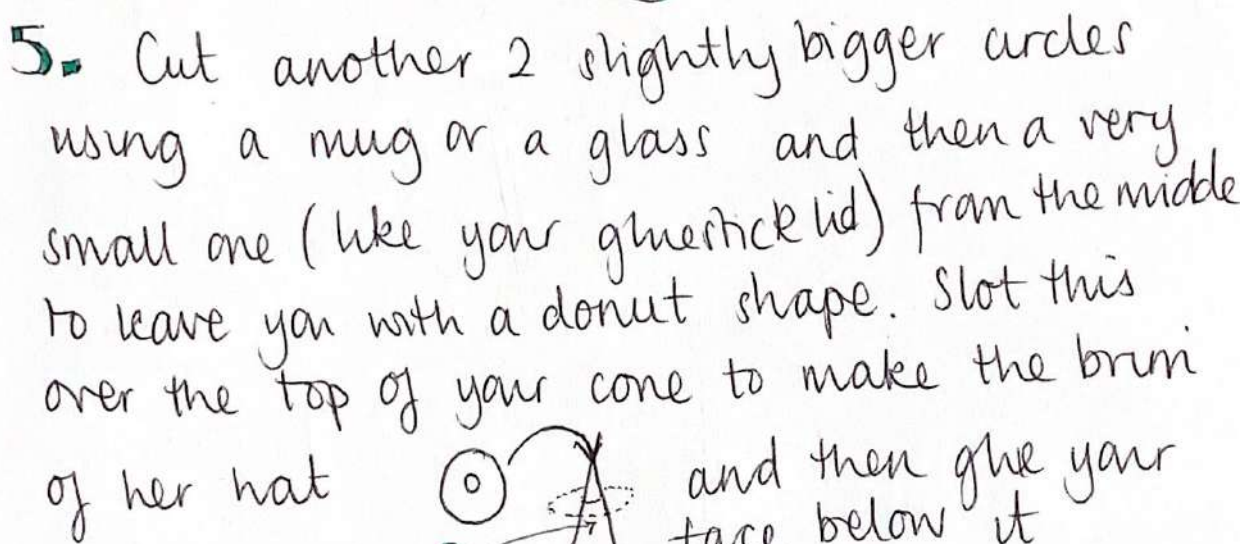 5. Cut another 2 slightly bigger circles
using a mug or a glass and then a very
small one (like your gluestick lid) from the middle
to leave you with a donut shape. Slot this
over the top of your cone to make the brim
of her hat and then glue your
face below it